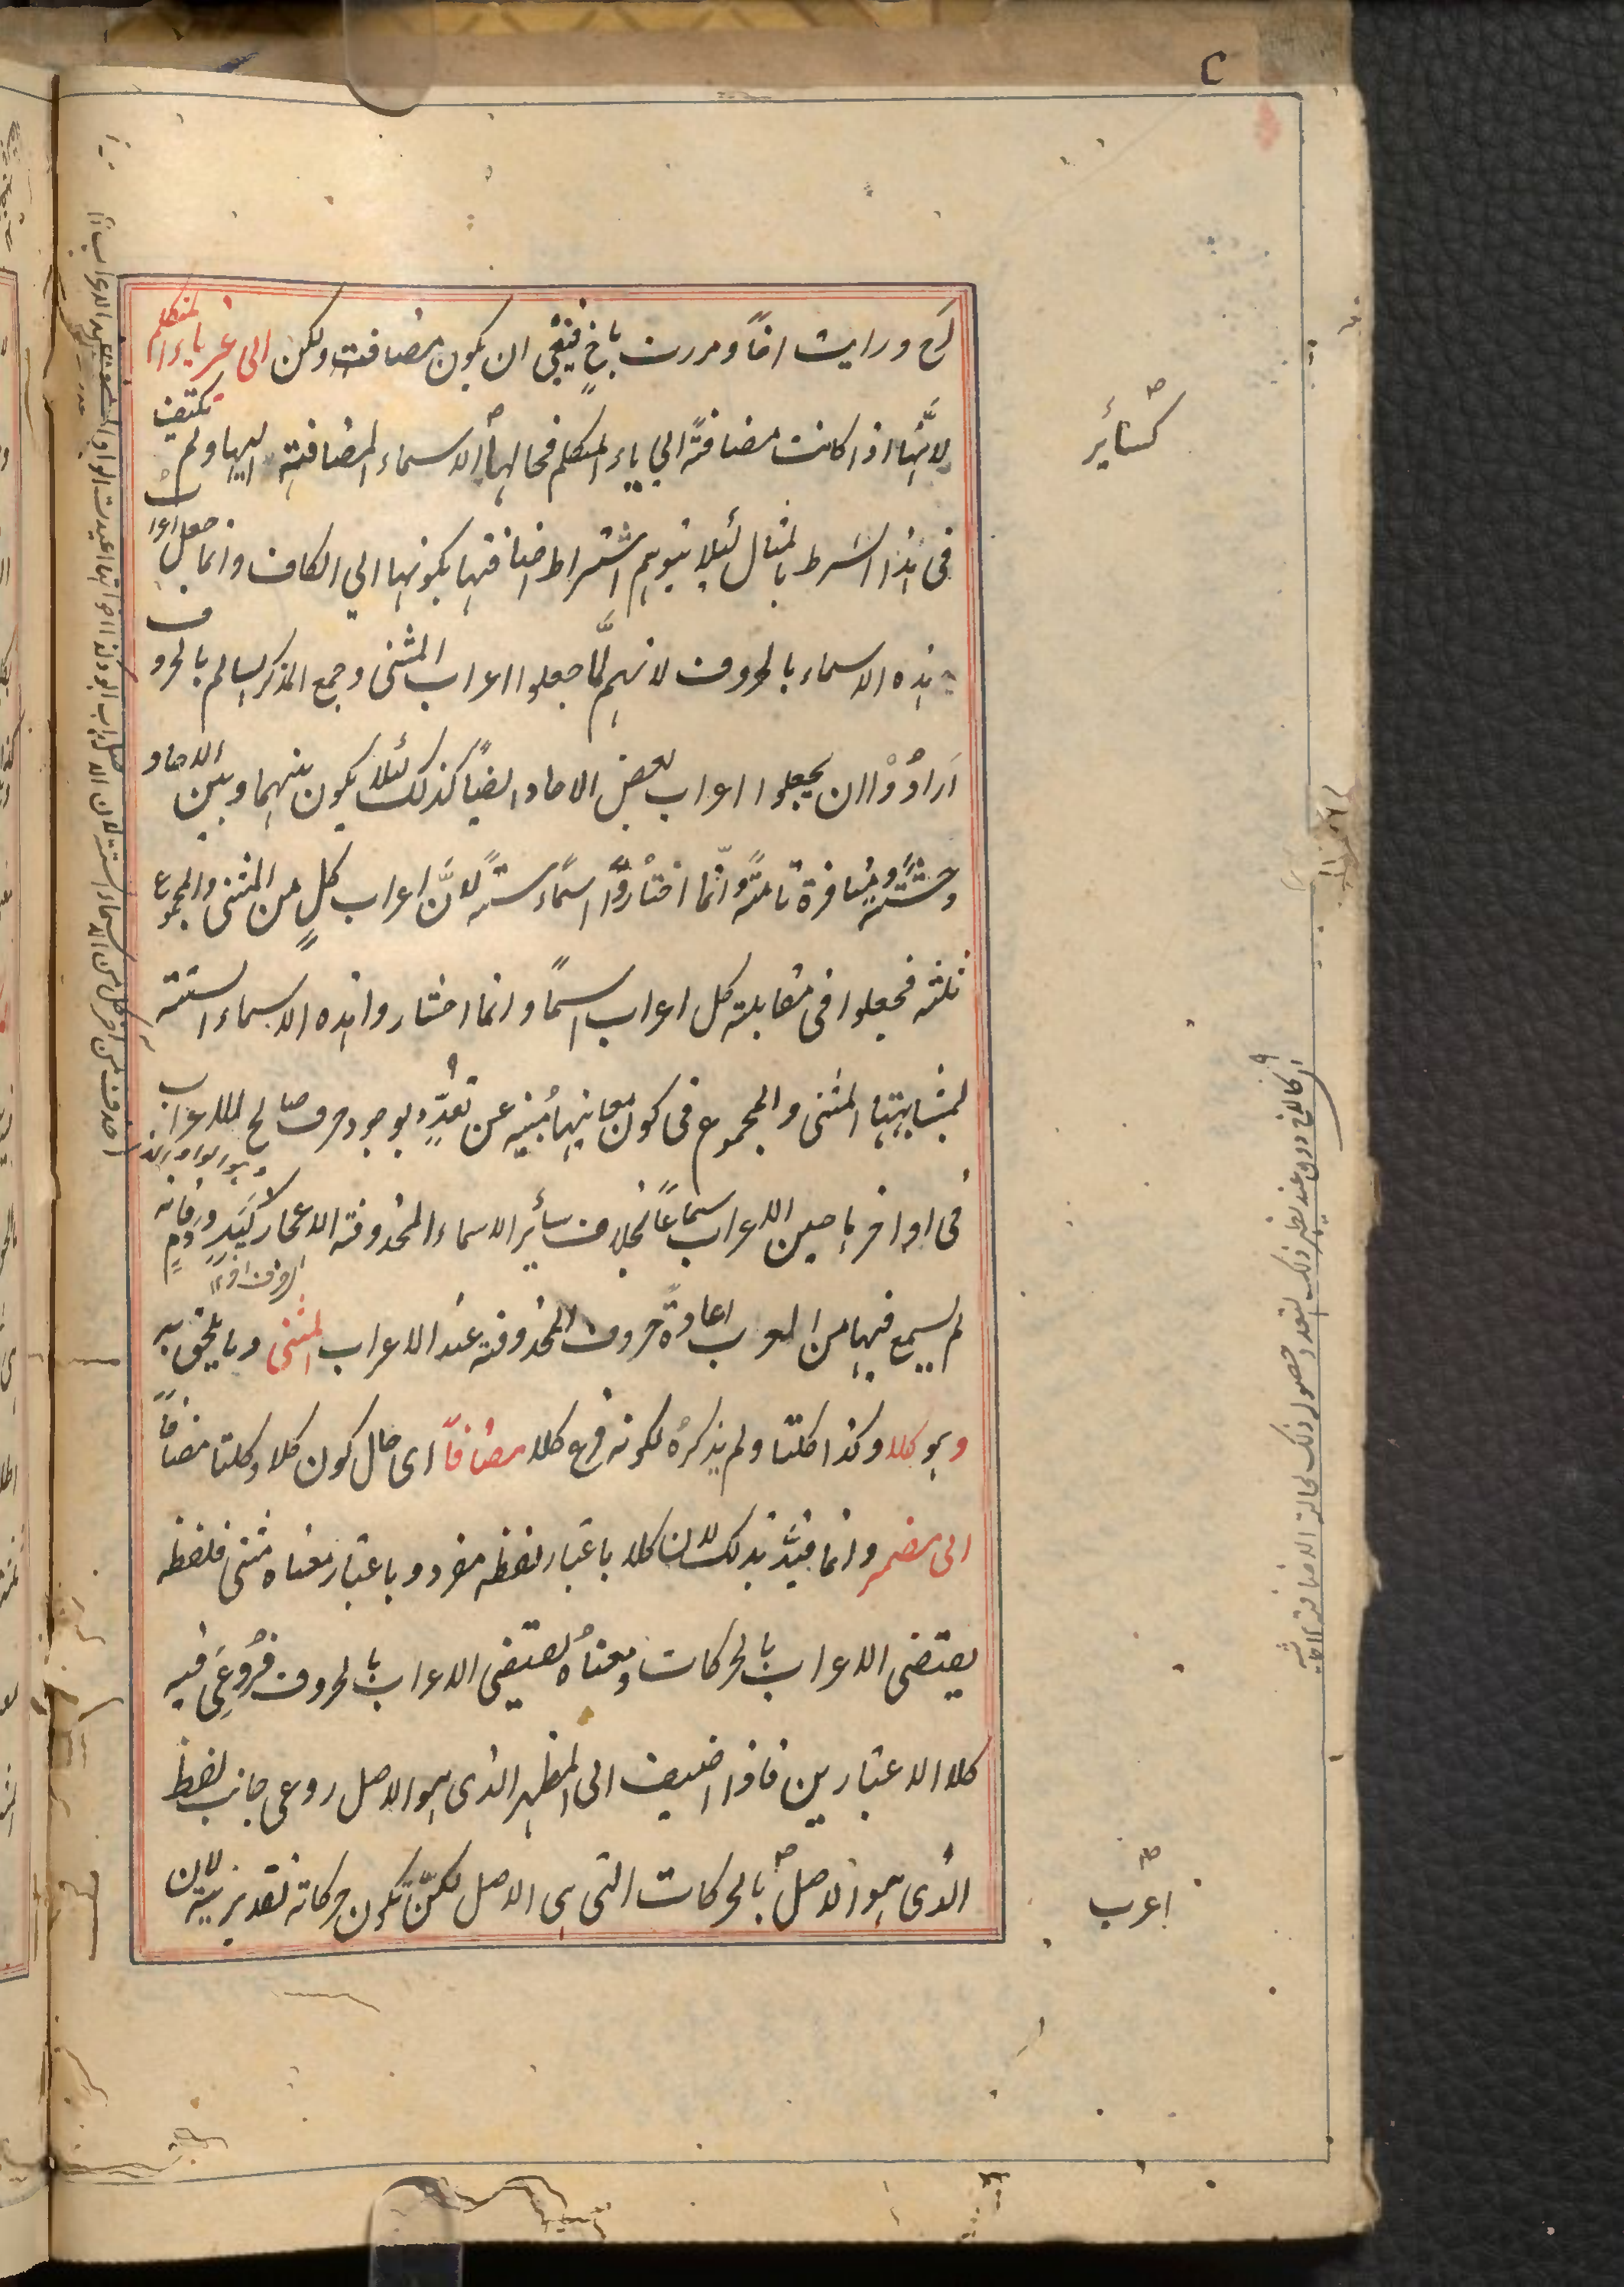 لخ ورايت اخاً ومررت باخٍ فينبغى ان يكون مضافة ولكن الى غير ياء المتكلم
لانَّها اذا كانت مضافةً الى ياء المتكلم فحالها الاسماء المضافة اليها ولم يكتف
فى هذا الشرط بالمثال لئلا يتوهم اشتراط اضافتها بكونها الى الكاف وانما جعل اعراب
هذه الاسماء بالحروف لانهم لمَّا جعلوا اعراب المثنى وجمع المذكر السالم بالحروف
اَرادُوْا ان يجعلوا اعراب بعض الاحاد ايضاً كذلك لئلا يكون بينهما وبين الاحاد
وحشةً ومنافرة تامّة وانّما اختارُوْا اسمآء ستة لانَّ اعراب كلٍ من المثنى والمجموع
ثلثة فجعلوا فى مقابلة كل اعراب اسمًا وانما اختاروا هذه الاسماء الستة
لمشابهتها المثنى والمجموع فى كون معانيها مُنبئة عن تعدُّدٍ بوجود حرف صالح للاعراب
فى اواخرها حين الاعراب سماعًا بخلاف سائر الاسماء المحذوفة الاعجاز كَيَدٍ ودَمٍ فانه
لم يسمع فيها من العرب اعادةُ حروف المحذوفة عند الاعراب المثنى وما يلحق به
وهو كلا وكذا كلتا ولم يذكرهُ لكونه فرع كلا مضافاً اى حال كون كلا وكلتا مضافاً
الى مضمر وانما قيَّد بذلك لان كلا باعتبار لفظه مفرد وباعتبار معناه مثنى فلفظه
يقتضى الاعراب بالحركات ومعناهُ يقتضى الاعراب بالحروف فرُوعِىَ فيه
كلا الاعتبارين فاذا اضيف الى المظهر الذى هو الاصل روعى جانب لفظه
الذى هو الاصل بالحركات التى هى الاصل لكنّ تكون حركاته تقديرية لان
كسائر
اعرب